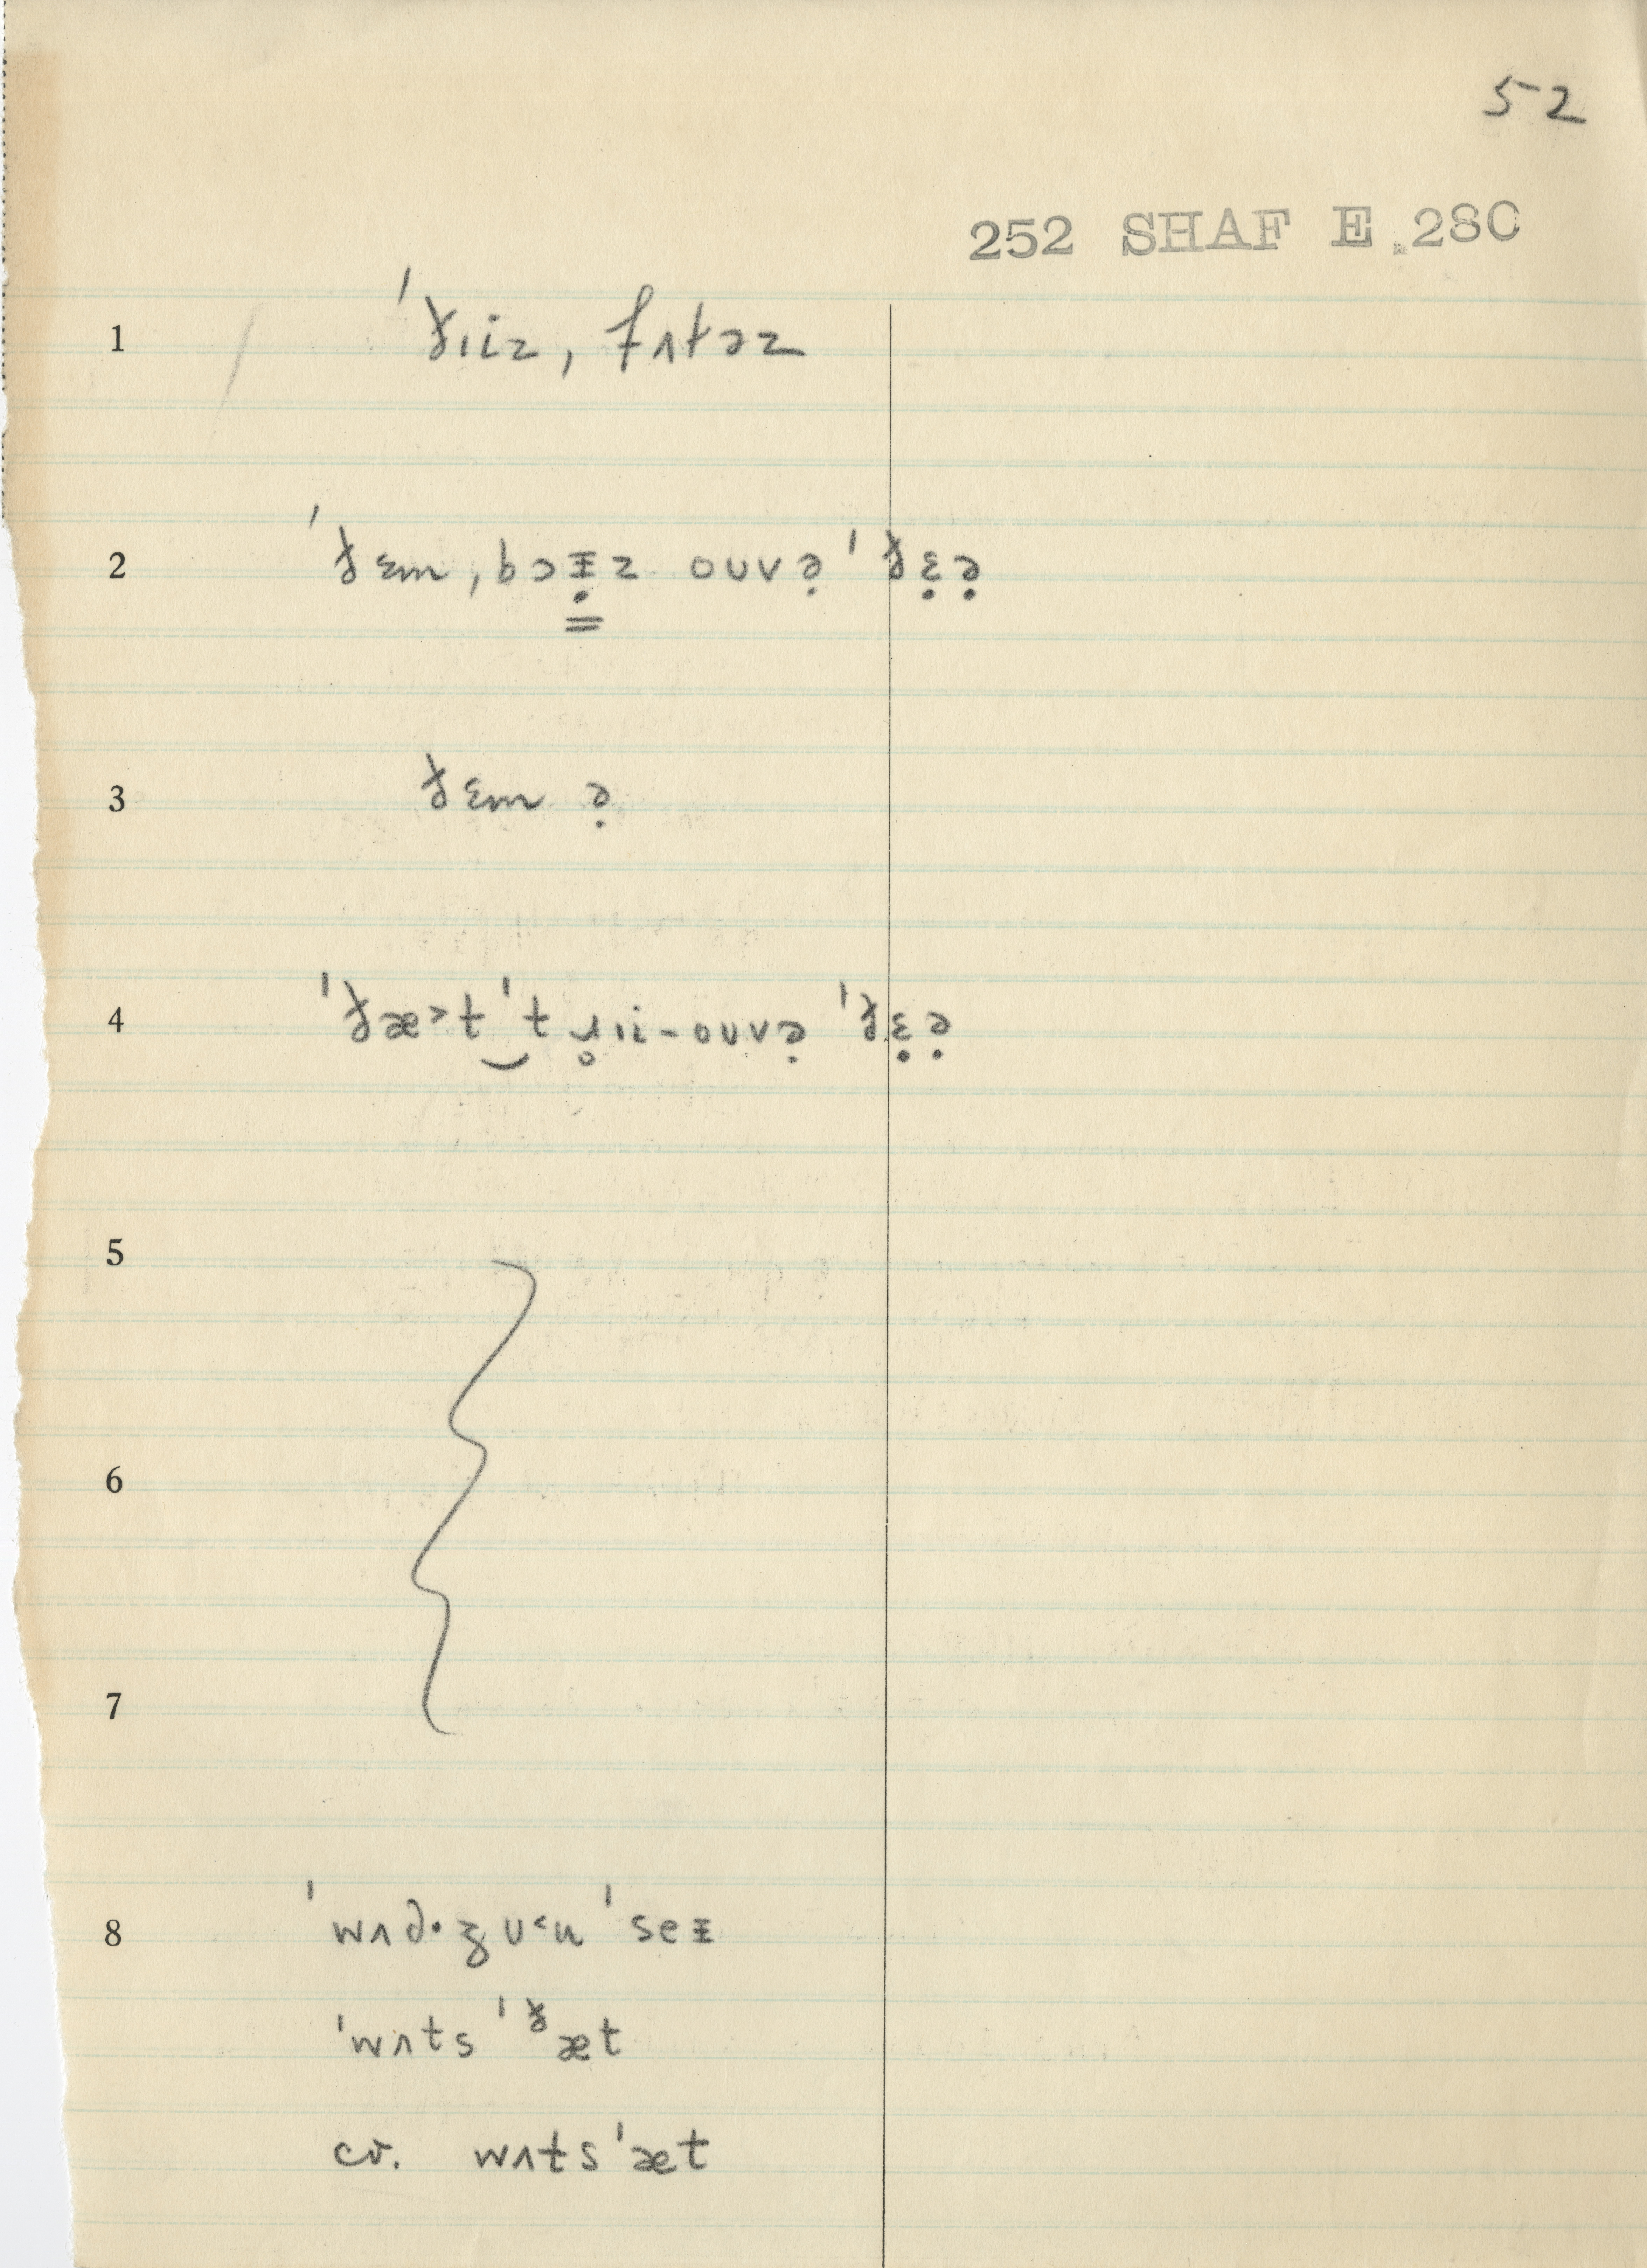 52
252 SHAF E.280
1 ˈð̵ɪiz, fʌt̵əz
2 ˈð̵ɛm, bɔᵻ̣z oʊvə̣ ˈð̵ɛ̣ə̣
3 ð̵ɛm ə̣
4 ˈð̵æ˃t‿ˈtɹ̥ɪi-oʊvə̣ ˈð̵ɛ̣ə̣
5
6
7
8 ˈwʌd·ʒʊ˂u ˈseᵻ
ˈwʌts ˈᵟæt
cv. wʌtsˈæt